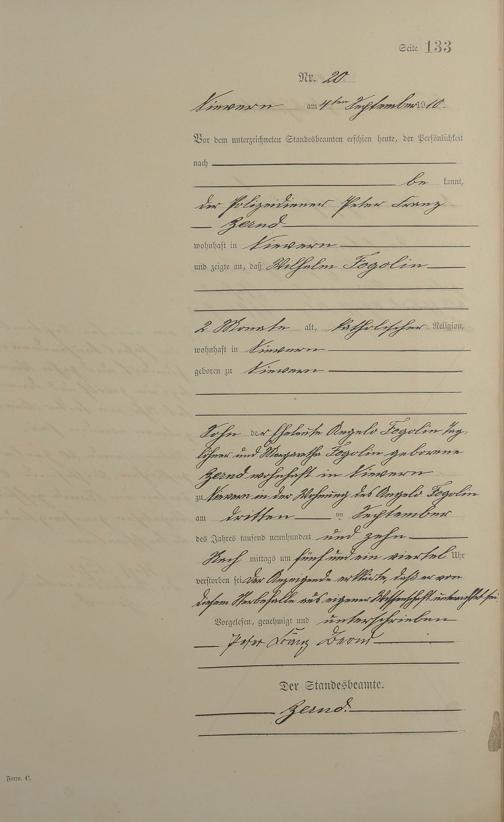 Seite 133
Nr. 20
Nievern am 4ten September 1910.
Vor dem unterzeichneten Standesbeamten erschien heute, der Persönlichkeit
nach
be kannt,
der Polizeidiener Peter Franz
Zernd
wohnhaft in Nievern
und zeigte an, daß Wilhelm Fogolin
2 Monate alt, katholischer Religion,
wohnhaft in Nievern
geboren zu Nievern
Sohn der Eheleute Angelo Fogolin Tag
löhner und Margaretha Fogolin geborene
Zernd wohnhaft in Nievern
zu Nievern in der Wohnung des Angelo Fogolin
am dritten September
des Jahres tausend neunhundert und zehn
Nach mittags um fünf und ein viertel Uhr
verstorben sei. Der Anzeigende erklärte, daß er von
diesem Sterbefalle aus eigener Wissenschaft unterrichtet sei
Vorgelesen, genehmigt und unterschrieben
Peter Franz
Der Standesbeamte.
Zernd.